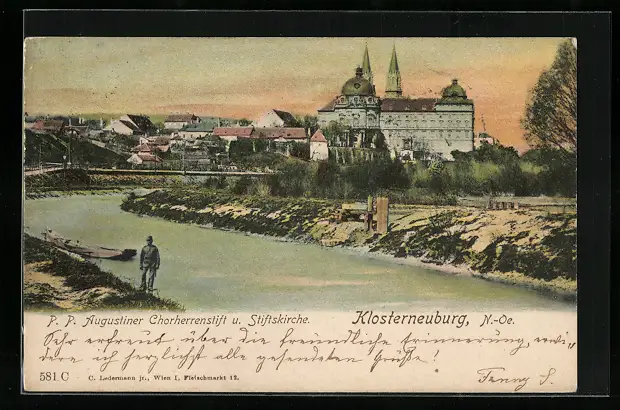 P. P. Augustiner Chorherrenstift u. Stiftskirche. Klosterneuburg, N.-Oe.
Sehr erfreut über die freundliche Erinnerung, erwi=
dere ich herzlichst alle gesendeten Grüße!
Fanny S.
581 C C. Ledermann jr., Wien I, Fleischmarkt 12.